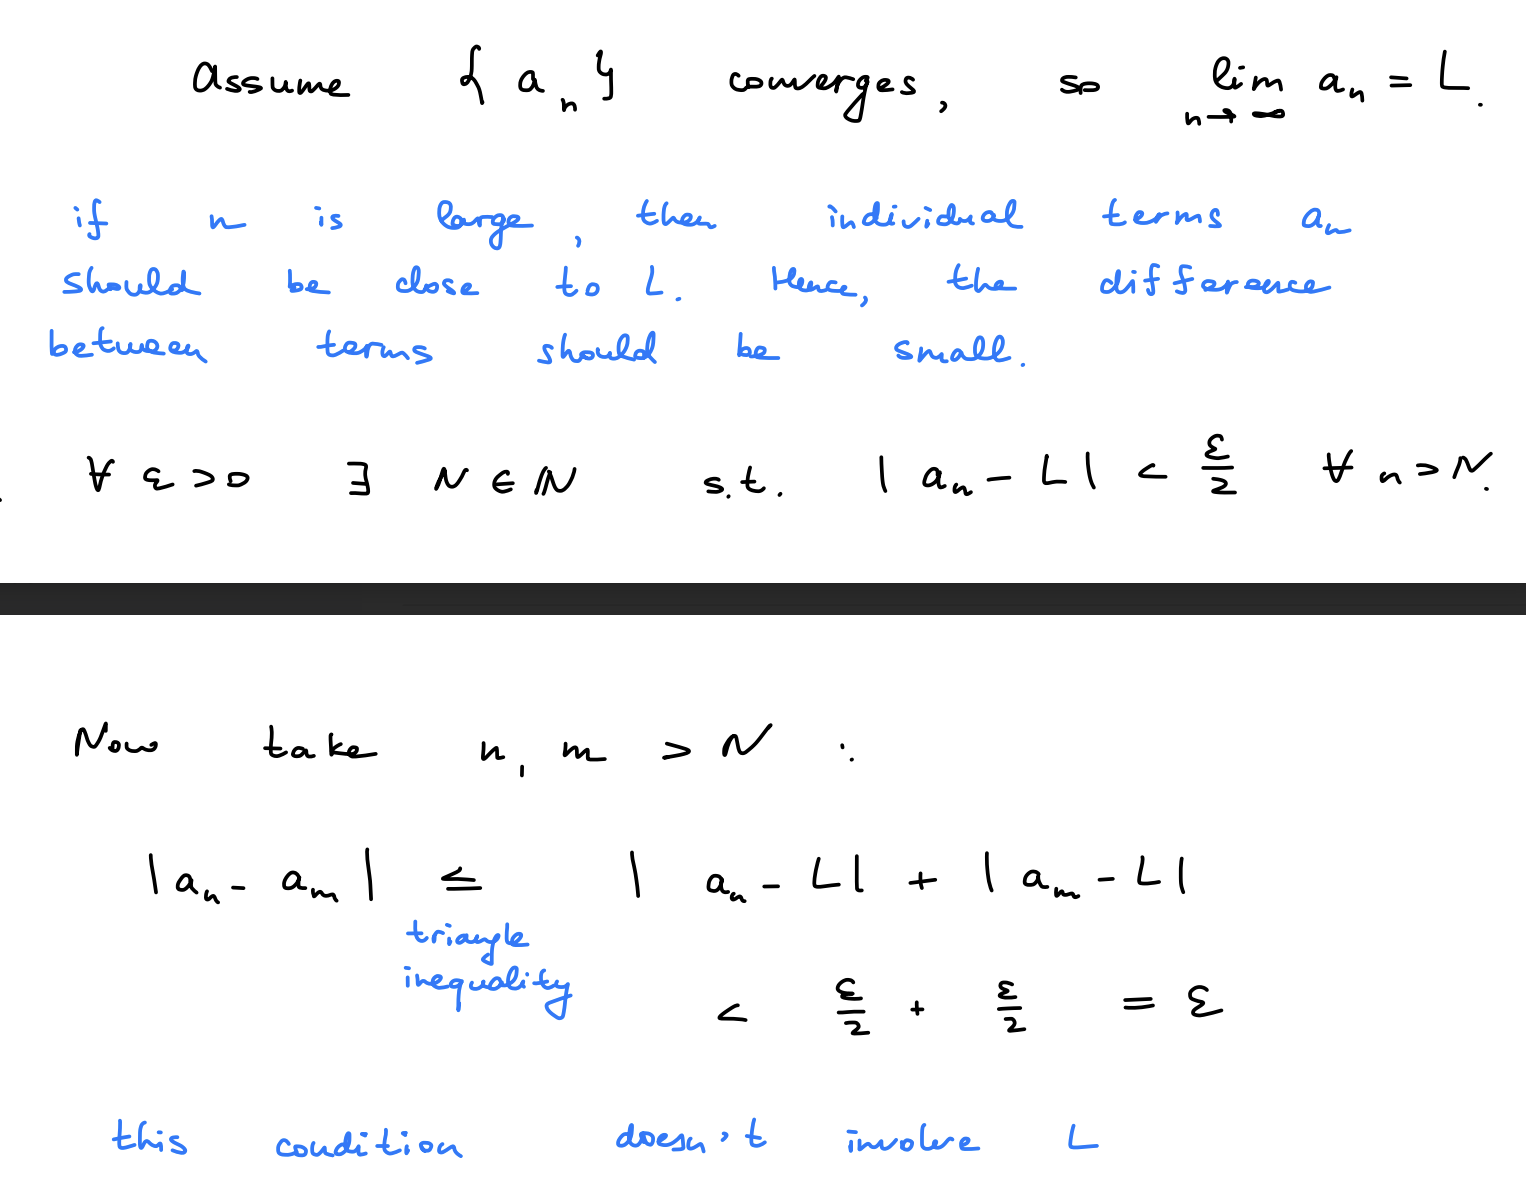 Assume { a_n } converges, so lim_{n→∞} a_n = L.
if n is large, then individual terms a_n
should be close to L. Hence, the difference
between terms should be small.
∀ ε > 0 ∃ N ∈ ℕ s.t. | a_n - L | < ε/2 ∀ n > N.
Now take n, m > N :
| a_n - a_m | ≤ | a_n - L | + | a_m - L |
triangle
inequality
< ε/2 + ε/2 = ε
this condition doesn't involve L